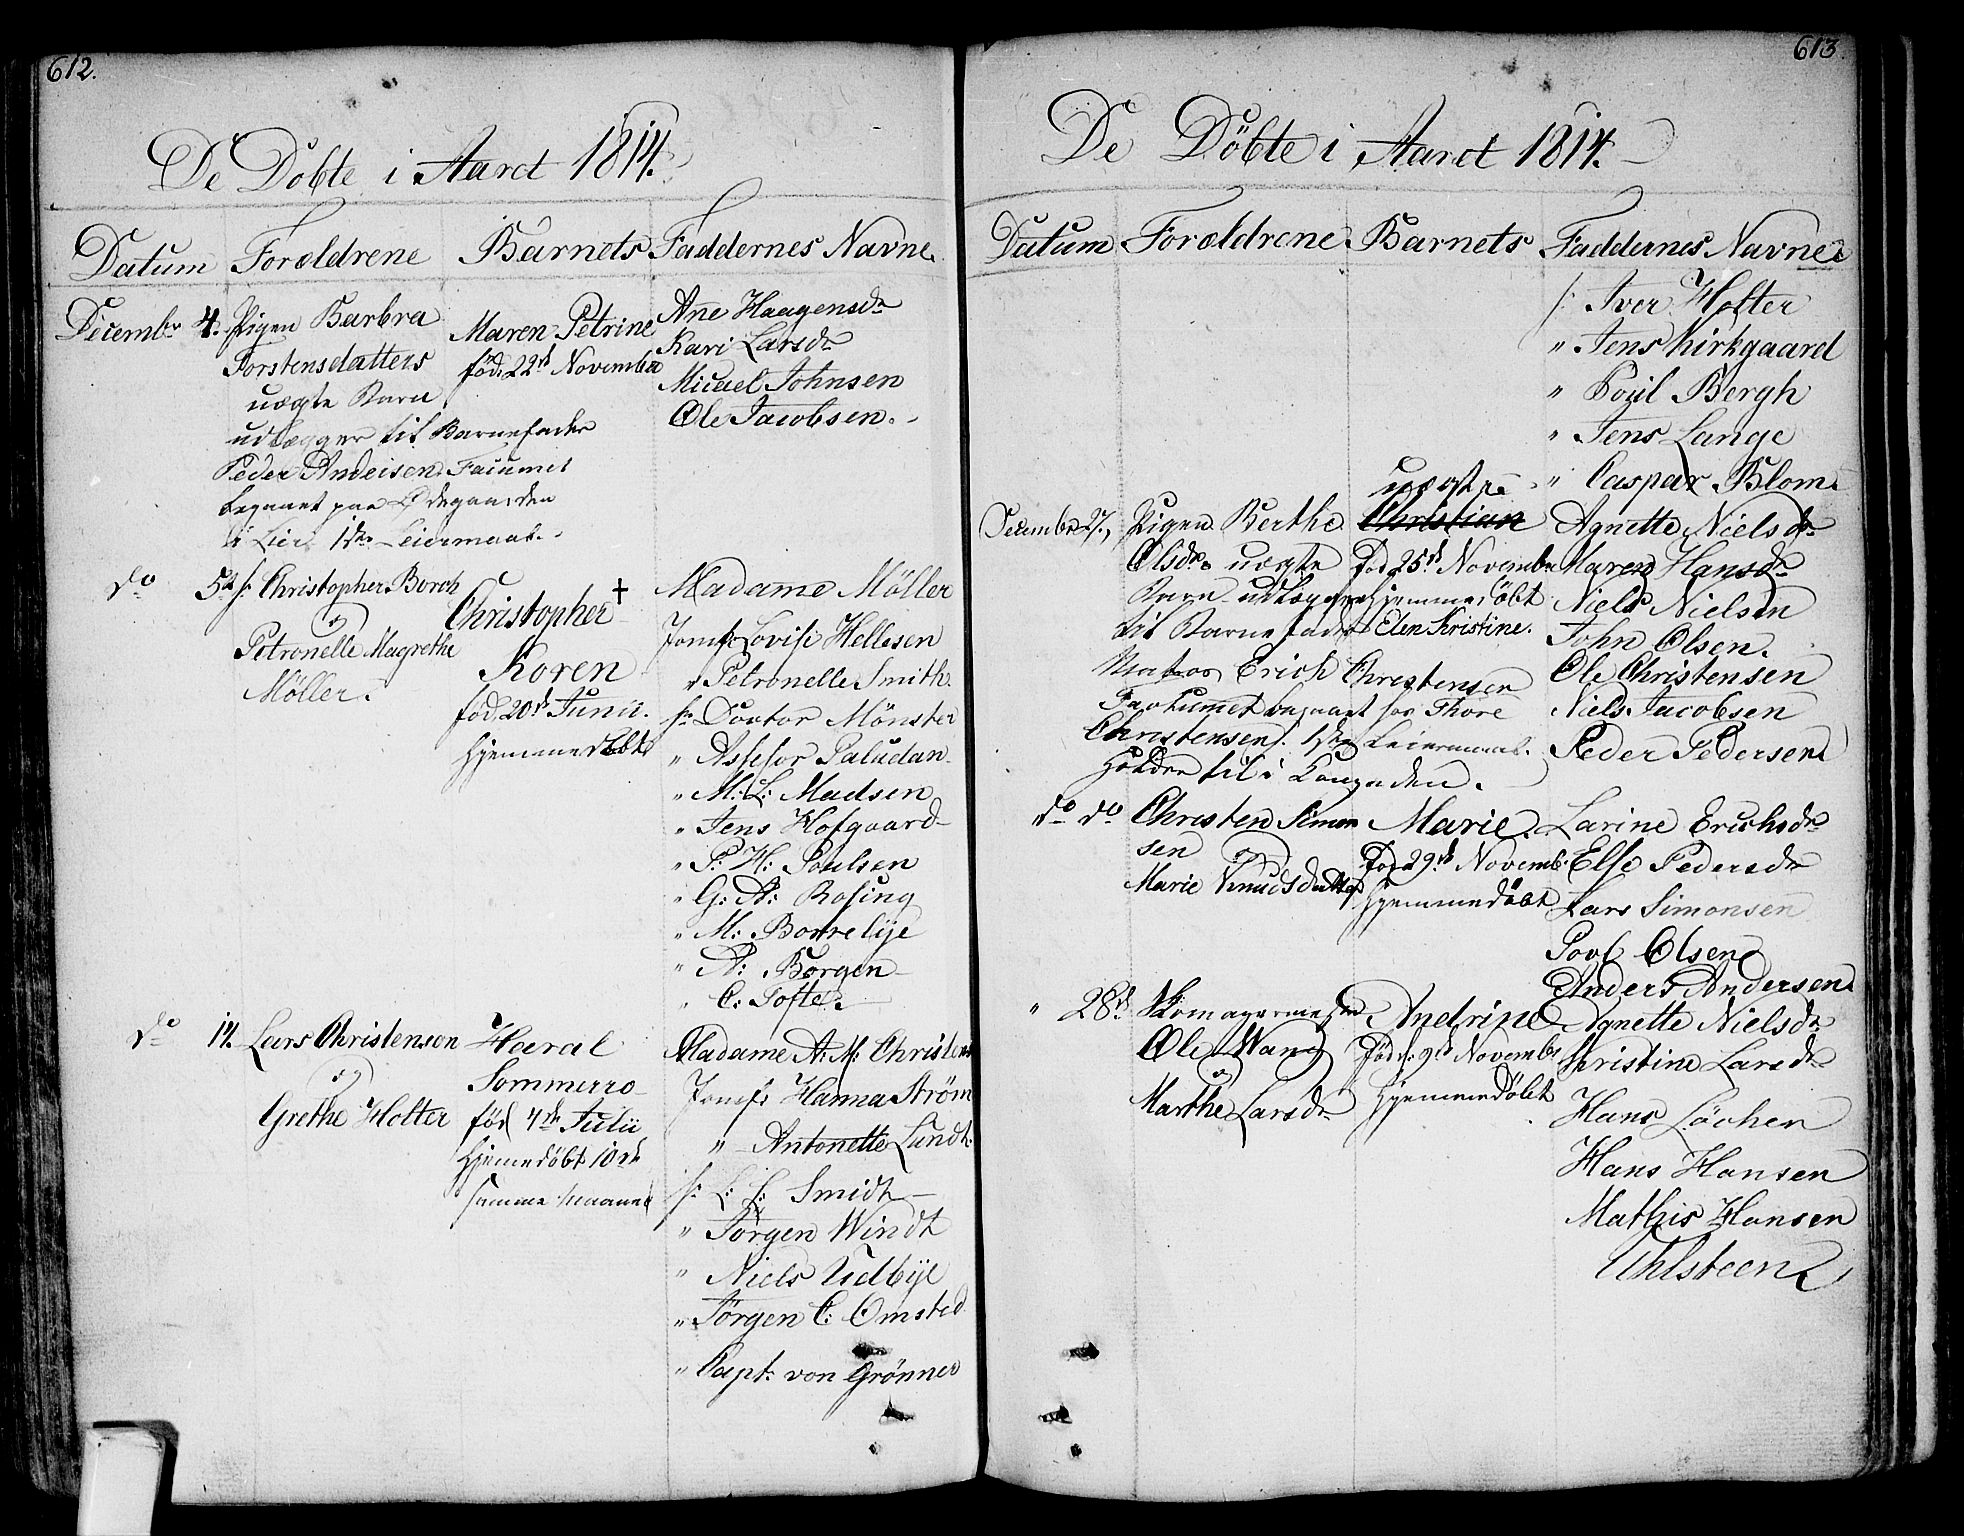 612.
De Döbte i Aaret 1814.
Datum Forældrene Barnets Faddernes Navne.
Decembr 4. Pigen Barbra
Torstensdatters
uægte Barn
udlægger til Barnefader
Peder Andersen Factumet
begaaet paa Ødegaarden
i Lier 1ste Leiermaal.
Maren Petrine
föd. 22de November
Ane Haagensdr
Kari Larsdr
Micael Johnsen
Ole Jacobsen.
do 5te hr Christopher Borch
og
Petronelle Magrethe
Möller.
Christopher †
Koren
föd. 20de Junii.
Hjemmedöbt
Madame Möller
Jomfr Lovise Hellesen
" Petronelle Smith
hr Doctor Mönster
" Assesor Paludan
" M: L: Madsen
" Jens Hofgaard
" P: H: Poulsen
" G: A: Rosing
" M: Borrelije
" A: Borgen
" C: Tofte.
do 14. Lars Christensen
og
Grethe Holter
Haral
Sommerro
föd 4de Julii
Hjemedöbt 10de
samme Maaned
Madame A: M: Christens
Jomfr Hanna Ström
" Antonette Lundt
hr L: L: Smidt
" Jörgen Windt
" Niels Udbye
" Jörgen C: Omsted
" Capt: von Grönner
613
De Döbte i Aaret 1814.
Datum Forældrene Barnets Faddernes Navne.
hr Iver Holter
" Jens Kirkgaard
" Poul Bergh
" Jens Lange
" Caspar Blom
Decembr 27. Pigen Berthe
Olsdr uægte
Barn udlægger
til Barnefader
Matros Erich Christensen
Factumet begaaet hos Thore
Christensen. 1ste Leiermaal.
Holder til i Langaden.
uægte
Christian
Föd 25de November
Hjemmedöbt
Elen Kristine.
Agnette Nielsdr
Maren Hansdr
Niels Nielsen
John Olsen.
Ole Christensen
Niels Jacobsen
Peder Pedersen
do do Christen Simon
sen
og
Marie Knudsdatter
Marie
Föd 29de Novemb:
Hjemmedöbt
Larine Erichsdr
Else Pedersdr
Lars Simonsen
Povl Olsen
Anders Andersen
" 28de Skomagermester
Ole Wang
og
Marthe Larsdr
Andrine
Föd 9de Novembr
Hjemmedöbt
Agnette Nielsdr
Kristine Larsdr
Hans Löchen
Hans Hansen
Mathis Hansen
Uhlsteen